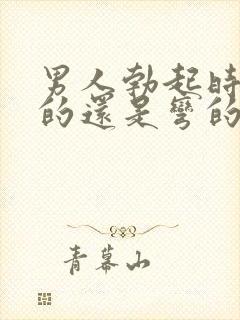 男人勃起時
的還是彎的
青幕山